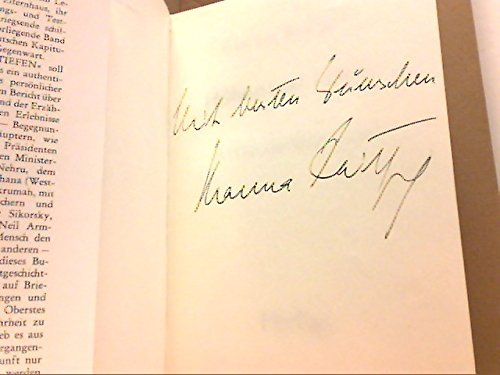 Elternhaus, ihr
ngs- und Test-
riegsende schil-
rliegende Band
utschen Kapitu-
Gegenwart.
TIEFEN« soll
s ein authenti-
s persönlicher
n Bericht über
nd der Erzäh-
en Erlebnisse
– Begegnun-
uptern, wie
Präsidenten
en Minister-
Nehru, dem
hana (West-
krumah, mit
chern und
r Sikorsky,
Neil Arm-
Mensch den
anderen –
dieses Bu-
tgeschicht-
auf Brie-
ngen und
Oberstes
hrheit zu
eb es aus
ergangen-
unft nur
werden
Mit besten Wünschen
Hanna Reitsch